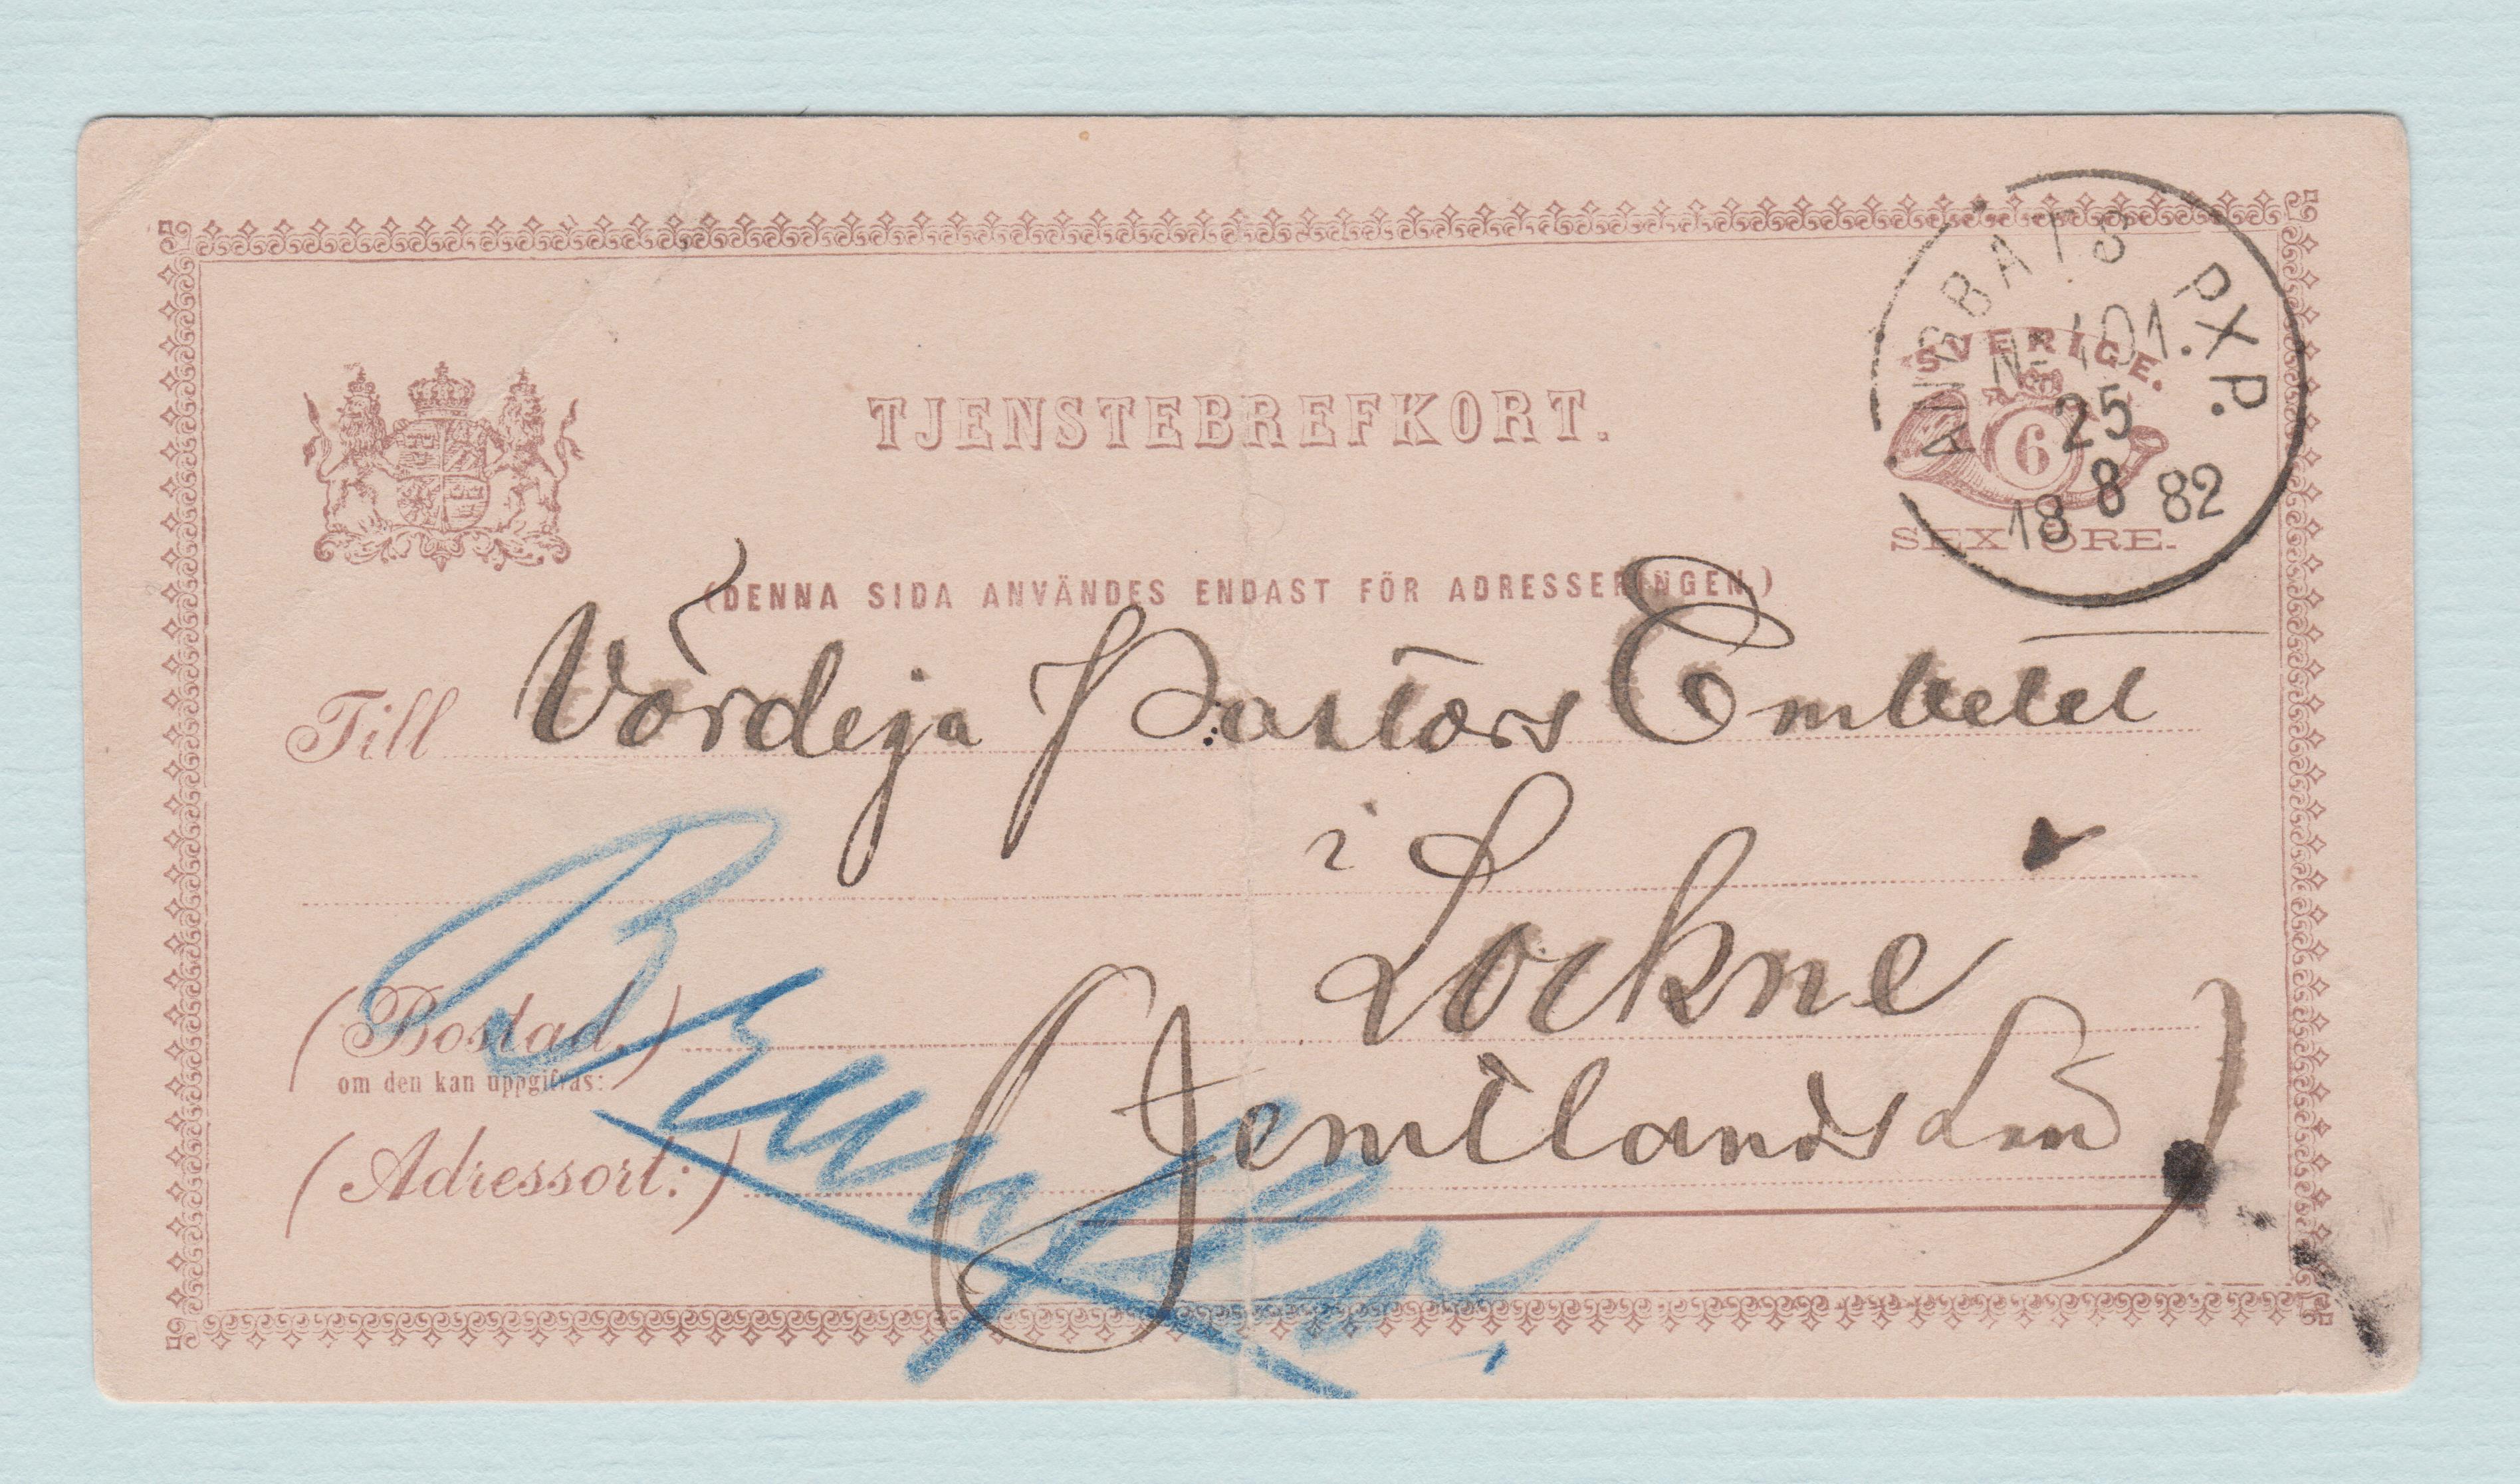 TJENSTEBREFKORT.
ÅNGBATS PXP.
No 101.
25
18 8 82
SVERIGE.
6
SEX ÖRE.
(DENNA SIDA ANVÄNDES ENDAST FÖR ADRESSERINGEN.)
Till Vördiga Pastors Embetet
i Lockne
(Bostad.)
om den kan uppgifvas:
(Adressort:) (Jemtlands Län)
Brunflo.